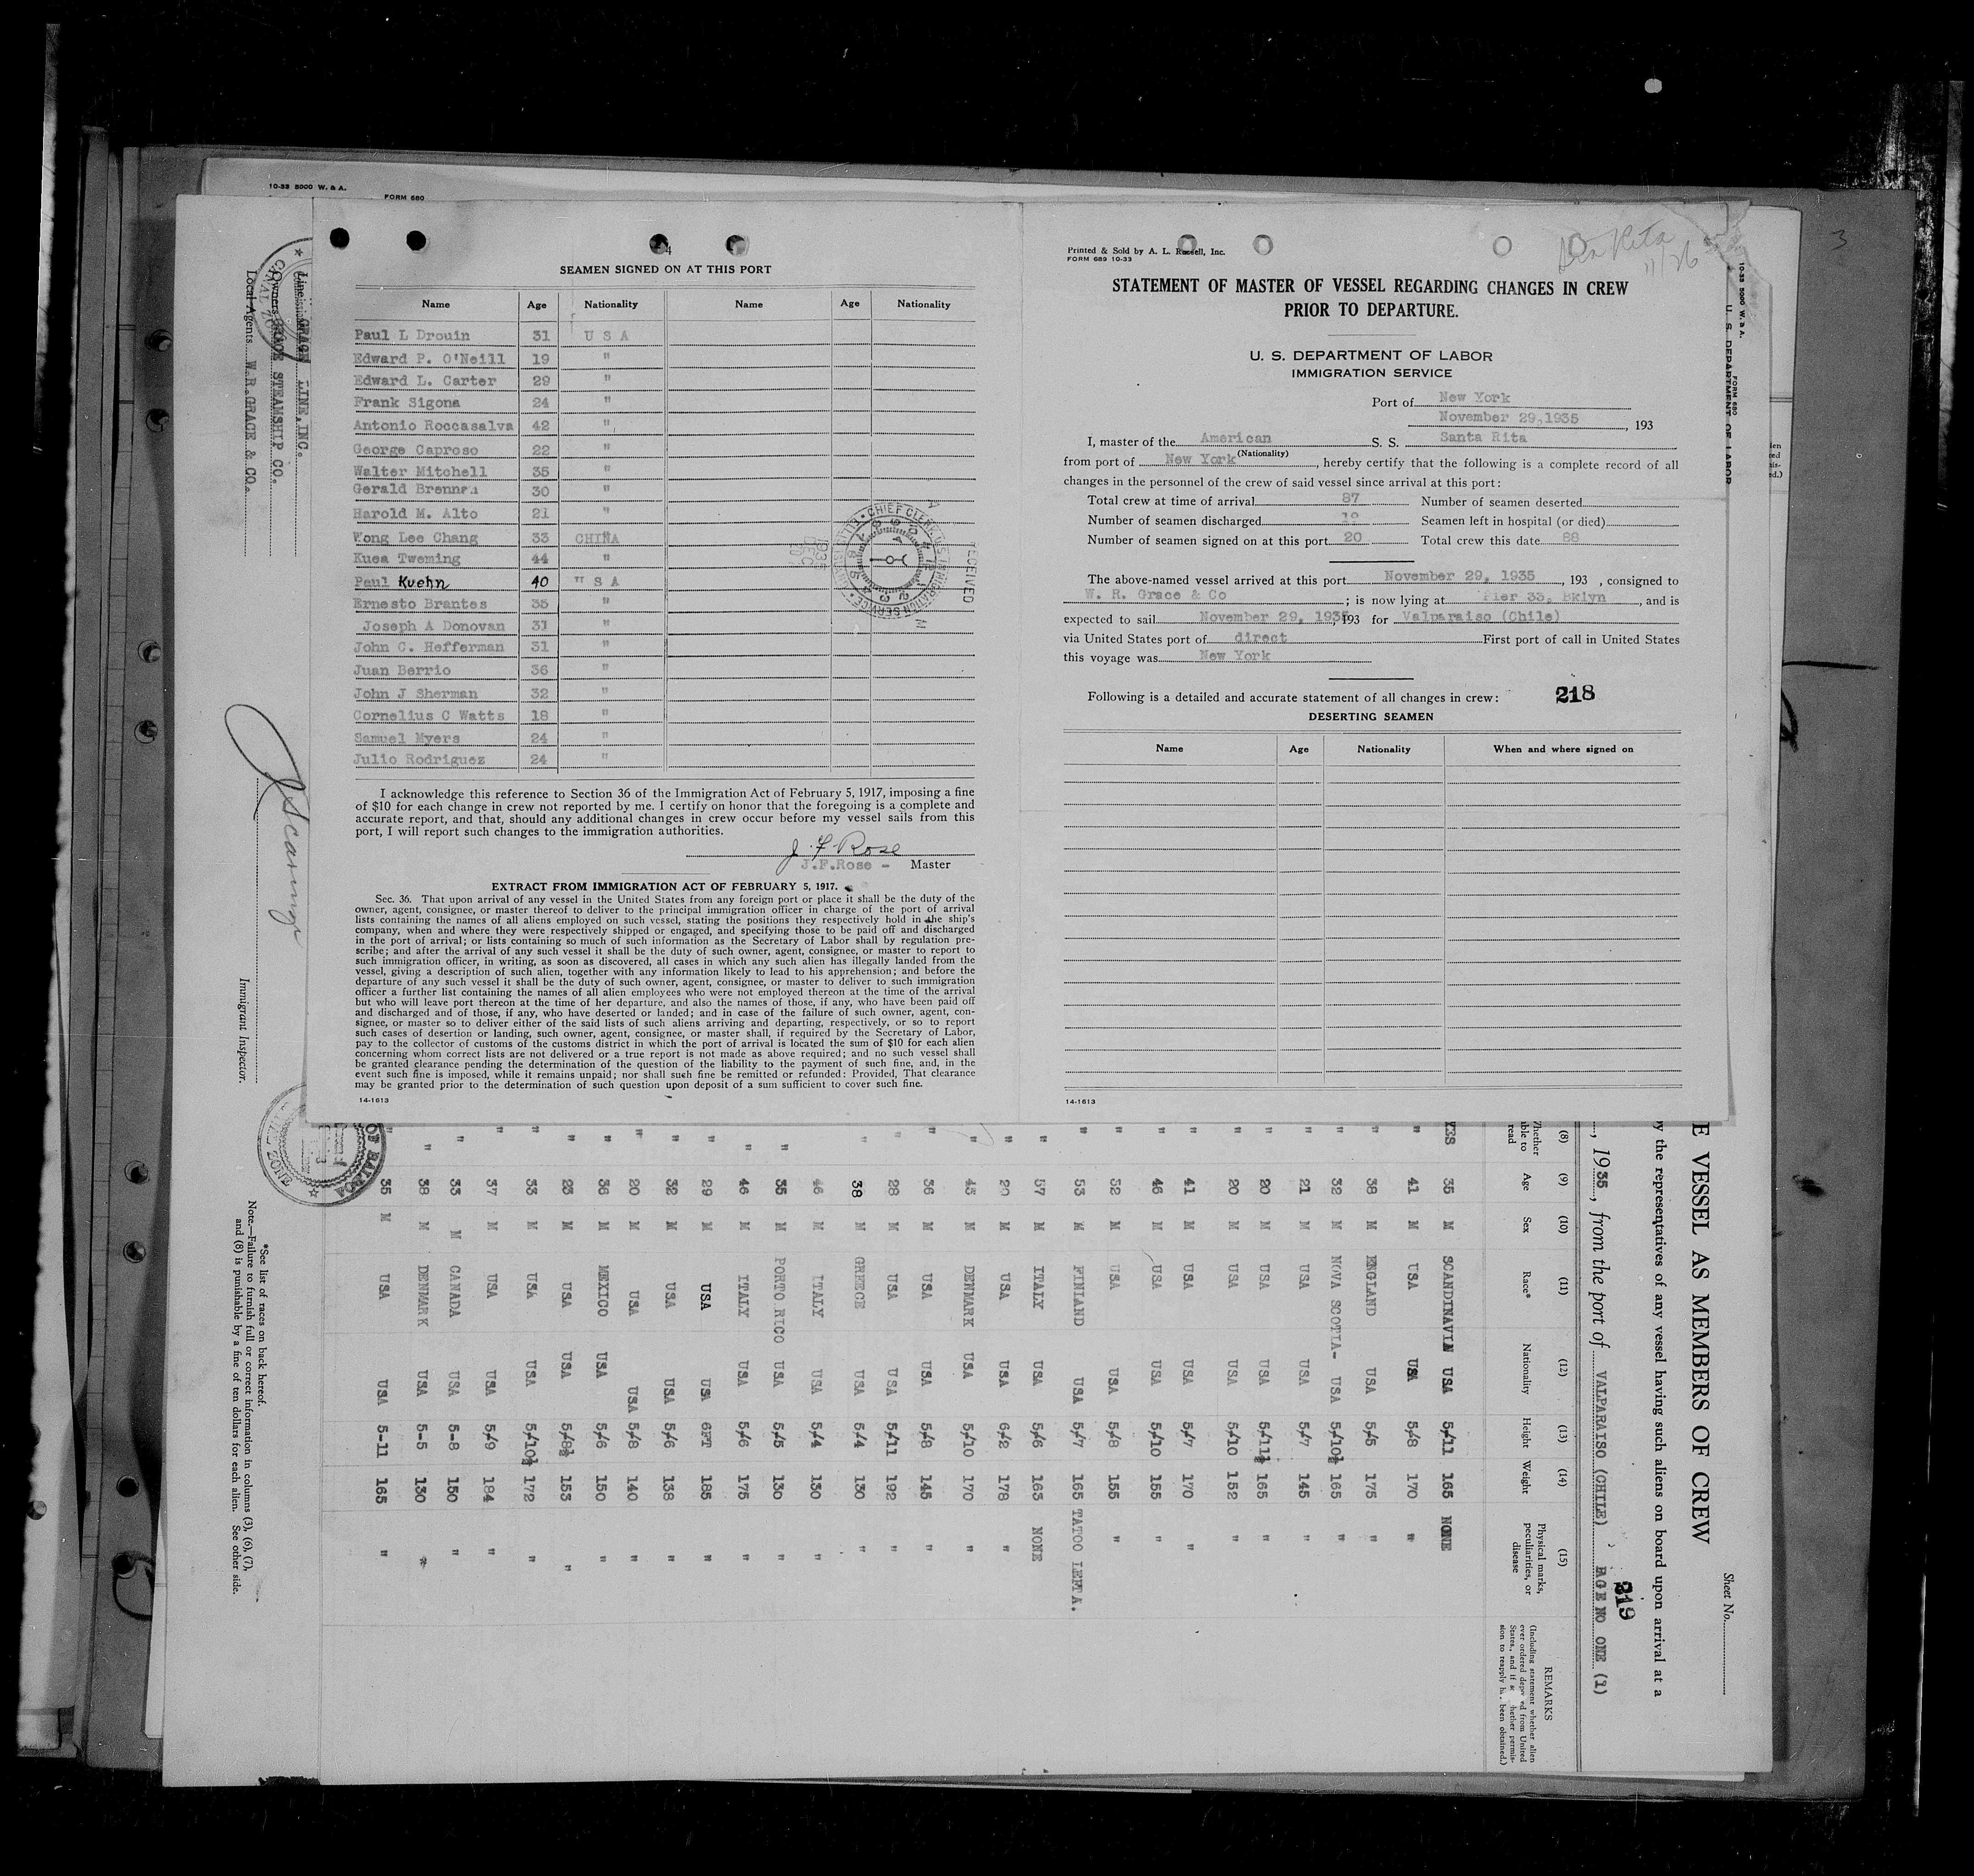 10-33 5000 W. & A.
FORM 680
4
SEAMEN SIGNED ON AT THIS PORT
Name Age Nationality Name Age Nationality
Paul L Drouin 31 U S A
Edward P. O'Neill 19 "
Edward L. Carter 29 "
Frank Sigona 24 "
Antonio Roccasalva 42 "
George Caproso 22 "
Walter Mitchell 35 "
Gerald Brennan 30 "
Harold M. Alto 21 "
Wong Lee Chang 33 CHINA
Kuea Tweming 44 "
Paul Kuehn 40 U S A
Ernesto Brantes 35 "
Joseph A Donovan 31 "
John C. Hefferman 31 "
Juan Berrio 36 "
John J Sherman 32 "
Cornelius C Watts 18 "
Samuel Myers 24 "
Julio Rodriguez 24 "
I acknowledge this reference to Section 36 of the Immigration Act of February 5, 1917, imposing a fine
of $10 for each change in crew not reported by me. I certify on honor that the foregoing is a complete and
accurate report, and that, should any additional changes in crew occur before my vessel sails from this
port, I will report such changes to the immigration authorities.
J. F. Rose
J.F.Rose - Master
EXTRACT FROM IMMIGRATION ACT OF FEBRUARY 5, 1917.
Sec. 36. That upon arrival of any vessel in the United States from any foreign port or place it shall be the duty of the
owner, agent, consignee, or master thereof to deliver to the principal immigration officer in charge of the port of arrival
lists containing the names of all aliens employed on such vessel, stating the positions they respectively hold in the ship's
company, when and where they were respectively shipped or engaged, and specifying those to be paid off and discharged
in the port of arrival; or lists containing so much of such information as the Secretary of Labor shall by regulation pre-
scribe; and after the arrival of any such vessel it shall be the duty of such owner, agent, consignee, or master to report to
such immigration officer, in writing, as soon as discovered, all cases in which any such alien has illegally landed from the
vessel, giving a description of such alien, together with any information likely to lead to his apprehension; and before the
departure of any such vessel it shall be the duty of such owner, agent, consignee, or master to deliver to such immigration
officer a further list containing the names of all alien employees who were not employed thereon at the time of the arrival
but who will leave port thereon at the time of her departure, and also the names of those, if any, who have been paid off
and discharged and of those, if any, who have deserted or landed; and in case of the failure of such owner, agent, con-
signee, or master so to deliver either of the said lists of such aliens arriving and departing, respectively, or so to report
such cases of desertion or landing, such owner, agent, consignee, or master shall, if required by the Secretary of Labor,
pay to the collector of customs of the customs district in which the port of arrival is located the sum of $10 for each alien
concerning whom correct lists are not delivered or a true report is not made as above required; and no such vessel shall
be granted clearance pending the determination of the question of the liability to the payment of such fine, and, in the
event such fine is imposed, while it remains unpaid; nor shall such fine be remitted or refunded: Provided, That clearance
may be granted prior to the determination of such question upon deposit of a sum sufficient to cover such fine.
14-1613
RECEIVED
CHIEF CLERK U.S. IMMIGRATION SERVICE
1935 DEC
Printed & Sold by A. L. Russell, Inc.
FORM 689 10-33
Sta Rita
11/26
3
STATEMENT OF MASTER OF VESSEL REGARDING CHANGES IN CREW
PRIOR TO DEPARTURE.
U. S. DEPARTMENT OF LABOR
IMMIGRATION SERVICE
Port of New York
November 29,1935, 193
I, master of the American S. S. Santa Rita
(Nationality)
from port of New York, hereby certify that the following is a complete record of all
changes in the personnel of the crew of said vessel since arrival at this port:
Total crew at time of arrival 87 Number of seamen deserted
Number of seamen discharged 19 Seamen left in hospital (or died)
Number of seamen signed on at this port 20 Total crew this date 88
The above-named vessel arrived at this port November 29, 1935, 193 , consigned to
W. R. Grace & Co; is now lying at Pier 33, Bklyn, and is
expected to sail November 29, 1935, 193 for Valparaiso (Chile)
via United States port of direct First port of call in United States
this voyage was New York
Following is a detailed and accurate statement of all changes in crew: 218
DESERTING SEAMEN
Name Age Nationality When and where signed on
14-1613
10-33 5000 W. & A.
FORM 680
U. S. DEPARTMENT OF LABOR
Sheet No.
E VESSEL AS MEMBERS OF CREW
y the representatives of any vessel having such aliens on board upon arrival at a
219
, 1935, from the port of VALPARAISO (CHILE) , RGE NO ONE (1)
(8) (9) (10) (11) (12) (13) (14) (15)
Whether able to read Age Sex Race* Nationality Height Weight Physical marks, peculiarities, or disease REMARKS
YES 35 M SCANDINAVIN USA 5/11 165 NONE
" 41 M USA USA 5/8 170 "
" 38 M ENGLAND USA 5/5 175 "
" 32 M NOVA SCOTIA- USA 5/10½ 165 "
" 21 M USA USA 5/7 145 "
" 20 M USA USA 5/11½ 165 "
" 20 M USA USA 5/10 152 "
" 41 M USA USA 5/7 170 "
" 46 M USA USA 5/10 155 "
" 32 M USA USA 5/8 155 "
" 53 M FINLAND USA 5/7 165 TATOO LEFT A.
" 57 M ITALY USA 5/6 163 NONE
" 29 M USA USA 6/2 178 "
" 43 M DENMARK USA 5/10 170 "
" 36 M USA USA 5/8 145 "
" 28 M USA USA 5/11 192 "
" 38 M GREECE USA 5/4 130 "
46 M ITALY USA 5/4 130 "
" 35 M PORTO RICO USA 5/5 130 "
" 46 M ITALY USA 5/6 175 "
" 29 M USA USA 6FT 185 "
" 32 M USA USA 5/6 138 "
" 20 M USA USA 5/8 140 "
" 36 M MEXICO USA 5/6 150 "
" 23 M USA USA 5/8½ 153 "
" 33 M USA USA 5/10½ 172 "
" 37 M USA USA 5/9 184 "
" 33 M CANADA USA 5-8 150 "
" 38 M DENMARK USA 5-5 130 "
" 35 M USA USA 5-11 165 "
Line GRACE LINE, INC.
Owners GRACE STEAMSHIP CO.
Local Agents W.R.GRACE & CO.
Immigrant Inspector.
OF BALBOA
ZONE
*See list of races on back hereof.
Note.—Failure to furnish full or correct information in columns (3), (6), (7),
and (8) is punishable by a fine of ten dollars for each alien. See other side.